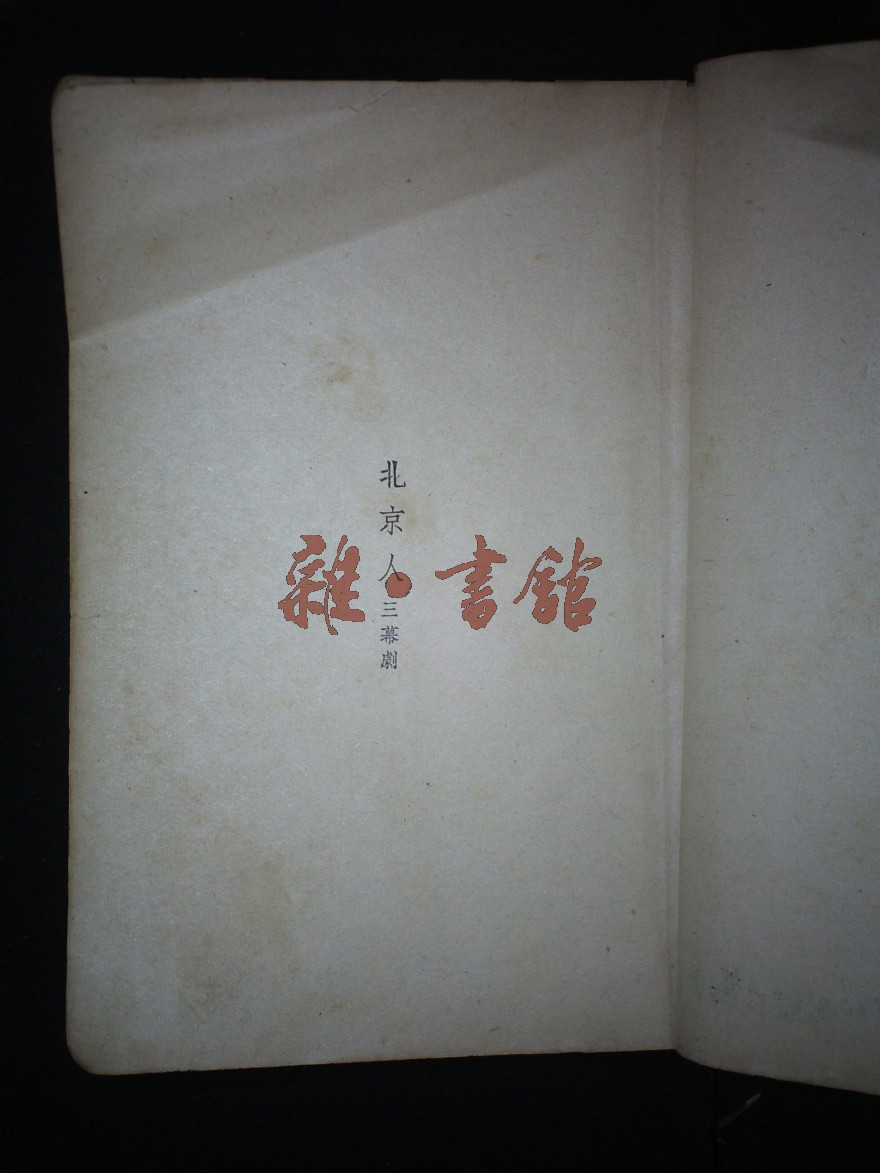 北京人
三幕劇
雜·書館